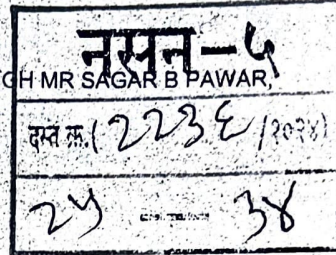 नसन-५
GH MR SAGAR B PAWAR,
दस्त क्र. (2236/२०२४)
२५ - ३४